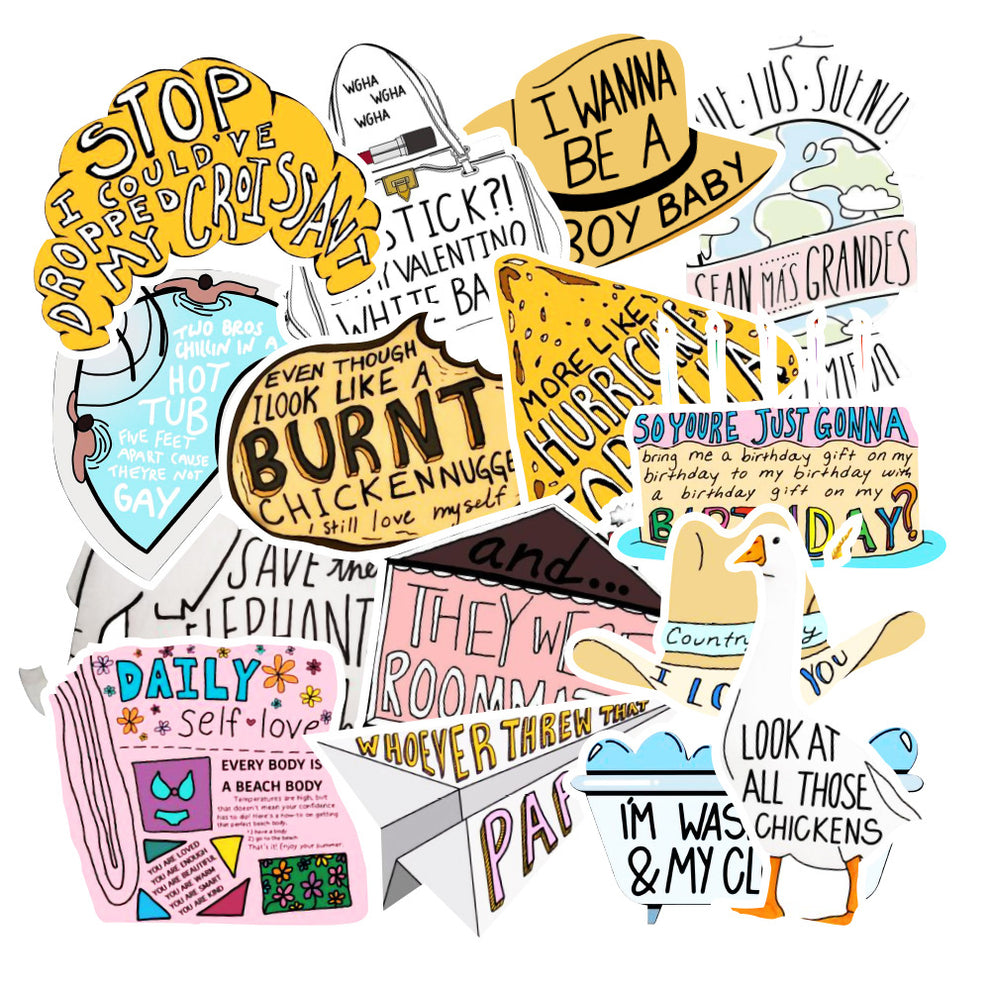 STOP
I COULD'VE
DROPPED
MY CROISSANT
WGHA
WGHA
WGHA
STICK?!
VALENTINO
WHITE BA
I WANNA
BE A
BOY BABY
TUS·SUEÑO
SEAN MÁS GRANDES
TWO BROS
CHILLIN IN A
HOT
TUB
FIVE FEET
APART CAUSE
THEYRE NOT
GAY
EVEN THOUGH
I LOOK LIKE A
BURNT
CHICKEN NUGGE
I still love myself
MORE LIKE
HURRICANE
SO YOURE JUST GONNA
bring me a birthday gift on my
birthday to my birthday with
a birthday gift on my
BIRTHDAY?
SAVE the
ELEPHANT
and...
THEY WERE
ROOMMAT
Country
I LO YOU
DAILY
self love
EVERY BODY IS
A BEACH BODY
Temperatures are high, but
that doesn't mean your confidence
has to do! Here's a how-to on getting
that perfect beach body.
1) have a body
2) go to the beach
That's it! Enjoy your summer
YOU ARE LOVED
YOU ARE ENOUGH
YOU ARE BEAUTIFUL
YOU ARE WARM
YOU ARE SMART
YOU ARE KIND
WHOEVER THREW THAT
PAP
I'M WAS
& MY CL
LOOK AT
ALL THOSE
CHICKENS